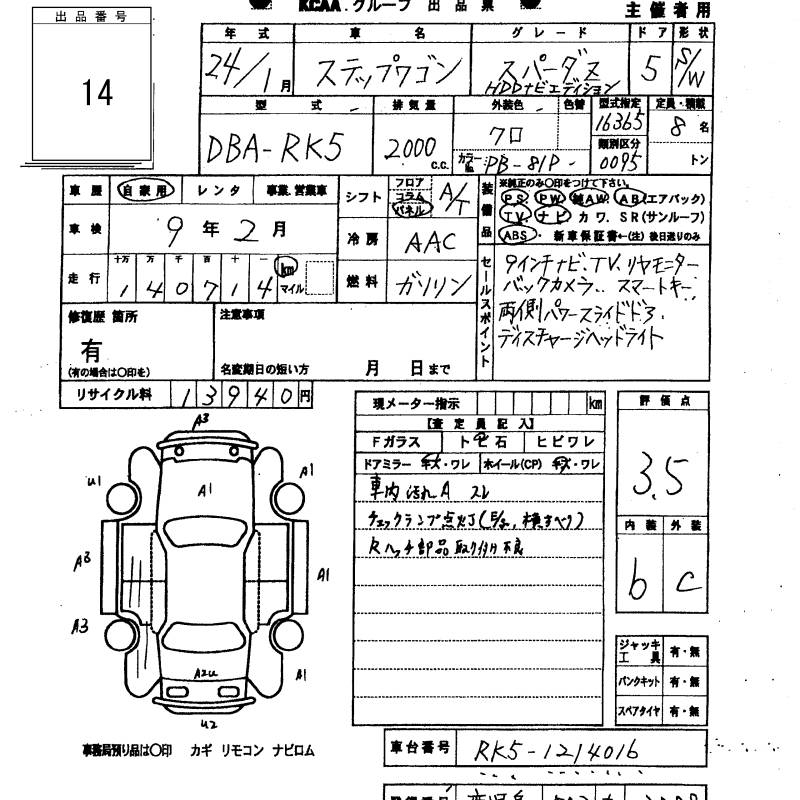 KCAA.グループ 出品票
主催者用
出品番号
14
年式 車名 グレード ドア 形状
24/1月 ステップワゴン スパーダZ HDDナビエディション 5 S/W
型式 排気量 外装色 色替 型式指定 定員・積載
DBA-RK5 2000 c.c. クロ 16365 8名
カラーNo. PB-81P 類別区分 0095 トン
車歴 自家用 レンタ 事業.営業車
シフト フロア コラム パネル A/T
車検 9年2月
冷房 AAC
走行 十万 万 千 百 十 一 km マイル
1 4 0 7 1 4
燃料 ガソリン
装備品 ※純正のみ〇印をつけて下さい。
PS. PW. 純AW. AB(エアバック)
TV. ナビ カワ. SR(サンルーフ)
ABS ・ 新車保証書←(注)後日送りのみ
セールスポイント
9インチナビ.TV.リヤモニター
バックカメラ. スマートキー
両側パワースライドドア.
ディスチャージヘッドライト
修復歴 箇所
有
(有の場合は〇印を)
注意事項
名変期日の短い方 月 日まで
リサイクル料 13940円
現メーター指示 km
【査定員記入】
Fガラス トビ石 ヒビワレ
ドアミラー キズ・ワレ ホイール(CP) キズ・ワレ
車内 汚れA スレ
チェックランプ点灯(E/g, 横すべり)
Rハッチ部品取り付け不良
評価点
3.5
内装 外装
b C
ジャッキ工具 有・無
パンクキット 有・無
スペアタイヤ 有・無
A3
U1
A1
A1
A3
A1
A3
A1
A2U
U2
事務局預り品は〇印 カギ リモコン ナビロム
車台番号 RK5-1214016